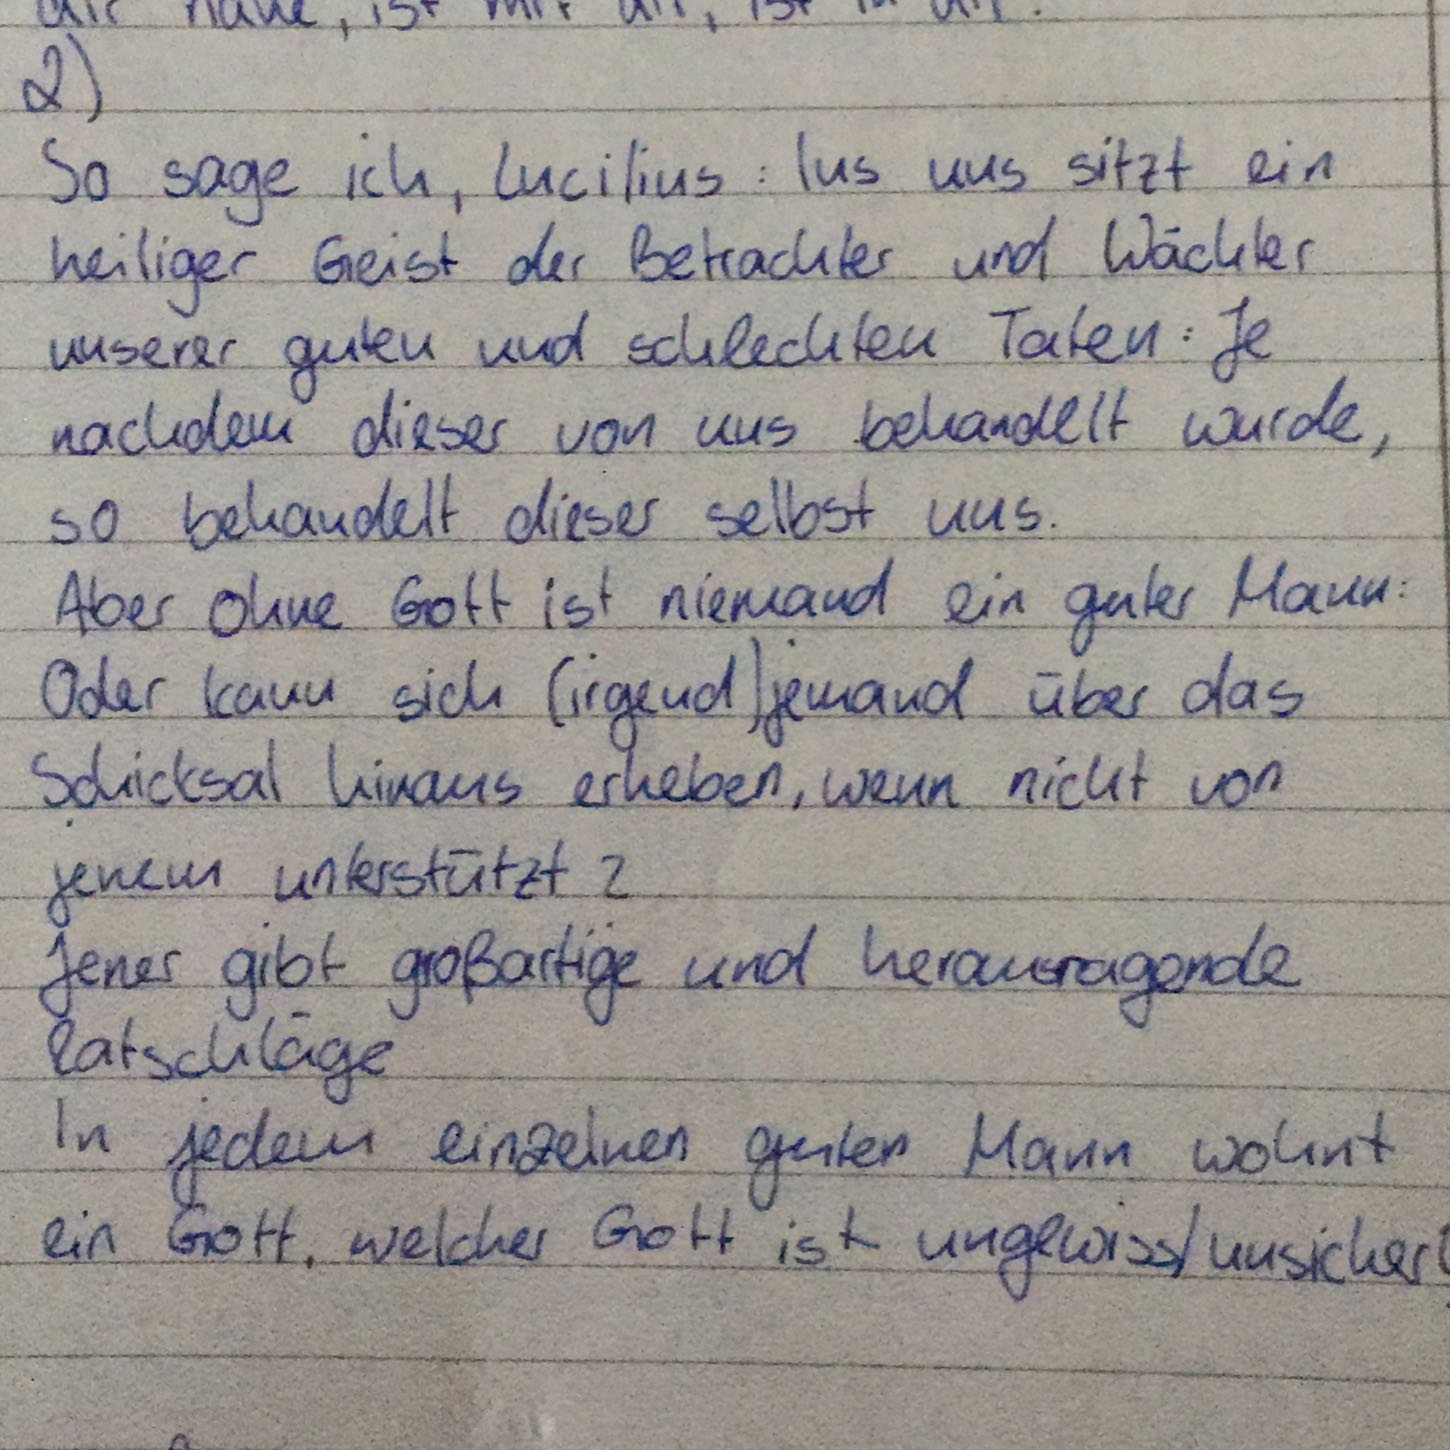 dir nahe, ist mit dir, ist in dir.
2)
So sage ich, Lucilius: Ins uns sitzt ein
heiliger Geist der Betrachter und Wächter
unserer guten und schlechten Taten: Je
nachdem dieser von uns behandelt wurde,
so behandelt dieser selbst uns.
Aber ohne Gott ist niemand ein guter Mann:
Oder kann sich (irgend)jemand über das
Schicksal hinaus erheben, wenn nicht von
jenem unterstützt?
Jener gibt großartige und herausragende
Ratschläge
In jedem einzelnen guten Mann wohnt
ein Gott, welcher Gott ist ungewiss/unsicher